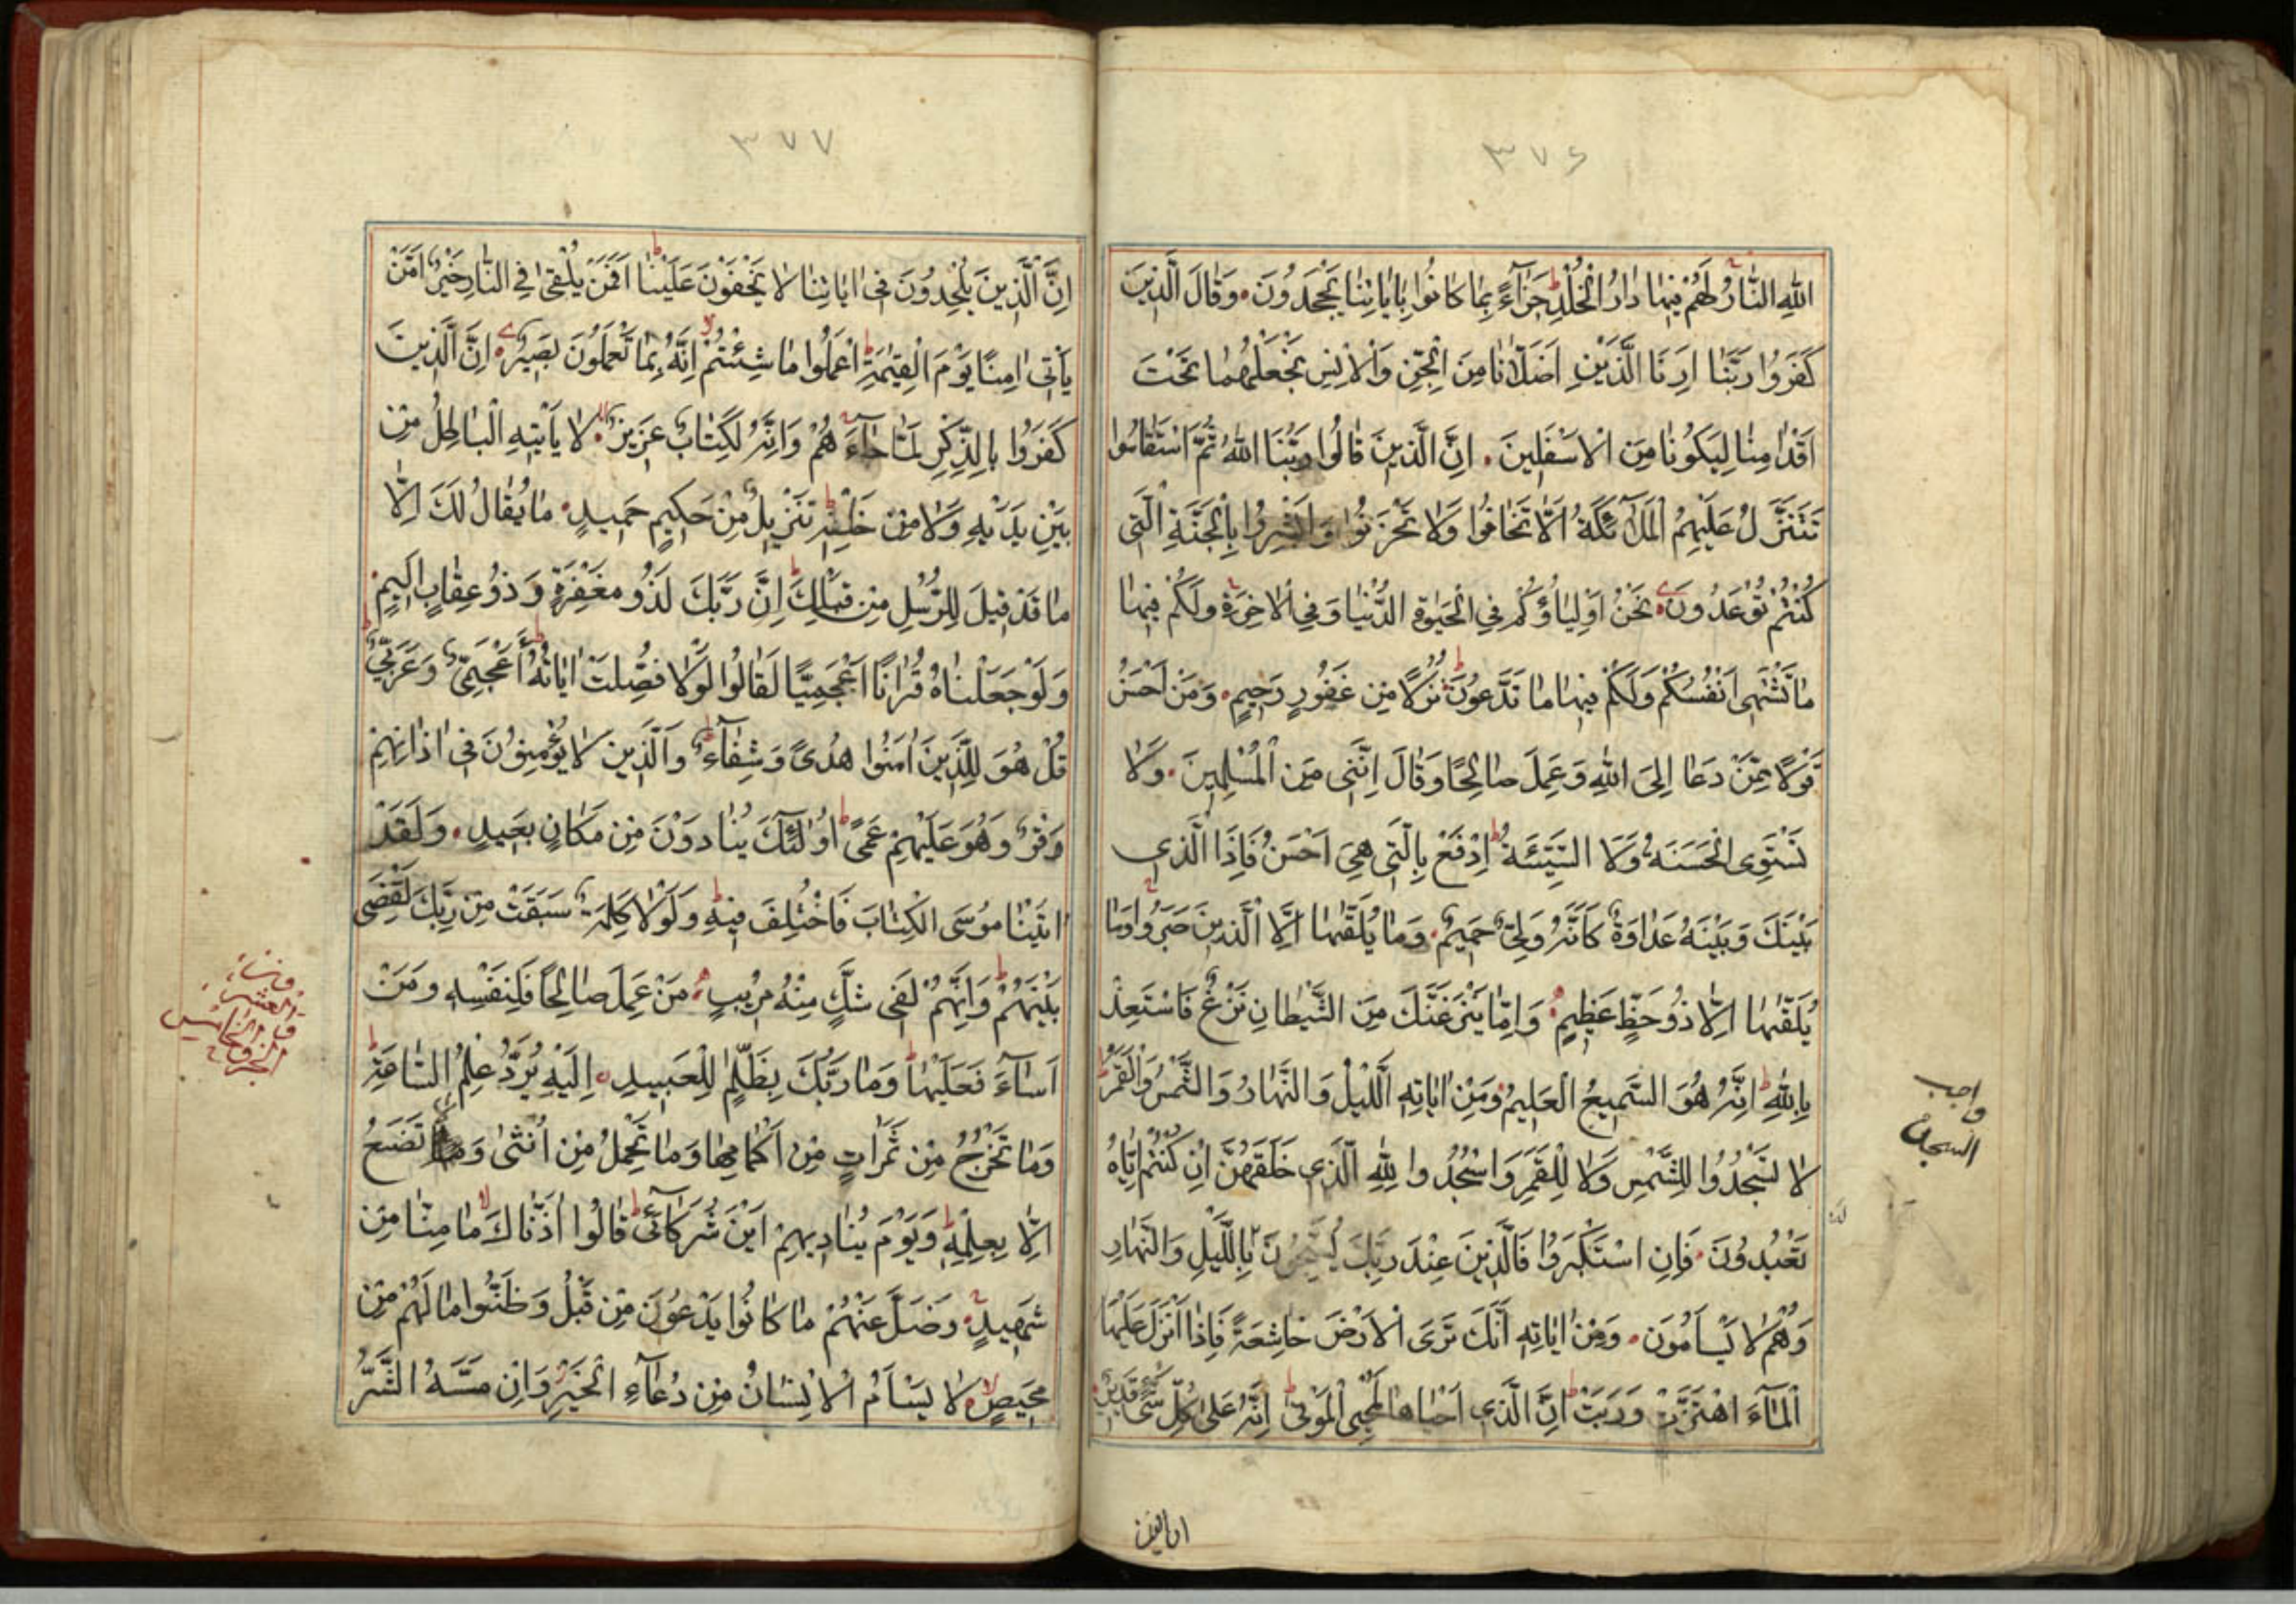 ٣٧۶
اللهِ النَّارُ لَهُمْ فِيهَا دَارُ الْخُلْدِ جَزَآءً بِمَا كَانُوا بِاٰيَاتِنَا يَجْحَدُونَ وَقَالَ الَّذِينَ
كَفَرُوا رَبَّنَا اَرِنَا الَّذَيْنِ اَضَلَّانَا مِنَ الْجِنِّ وَالْاِنْسِ نَجْعَلْهُمَا تَحْتَ
اَقْدَامِنَا لِيَكُونَا مِنَ الْاَسْفَلِينَ اِنَّ الَّذِينَ قَالُوا رَبُّنَا اللهُ ثُمَّ اسْتَقَامُوا
تَتَنَزَّلُ عَلَيْهِمُ الْمَلٰٓئِكَةُ اَلَّا تَخَافُوا وَلَا تَحْزَنُوا وَاَبْشِرُوا بِالْجَنَّةِ الَّتِي
كُنْتُمْ تُوعَدُونَ نَحْنُ اَوْلِيَاؤُكُمْ فِي الْحَيٰوةِ الدُّنْيَا وَفِي الْاٰخِرَةِ وَلَكُمْ فِيهَا
مَا تَشْتَهِي اَنْفُسُكُمْ وَلَكُمْ فِيهَا مَا تَدَّعُونَ نُزُلًا مِنْ غَفُورٍ رَحِيمٍ وَمَنْ اَحْسَنُ
قَوْلًا مِمَّنْ دَعَا اِلَى اللهِ وَعَمِلَ صَالِحًا وَقَالَ اِنَّنِي مِنَ الْمُسْلِمِينَ وَلَا
تَسْتَوِي الْحَسَنَةُ وَلَا السَّيِّئَةُ اِدْفَعْ بِالَّتِي هِيَ اَحْسَنُ فَاِذَا الَّذِي
بَيْنَكَ وَبَيْنَهُ عَدَاوَةٌ كَاَنَّهُ وَلِيٌّ حَمِيمٌ وَمَا يُلَقّٰهَا اِلَّا الَّذِينَ صَبَرُوا وَمَا
يُلَقّٰهَا اِلَّا ذُو حَظٍّ عَظِيمٍ وَاِمَّا يَنْزَغَنَّكَ مِنَ الشَّيْطَانِ نَزْغٌ فَاسْتَعِذْ
بِاللهِ اِنَّهُ هُوَ السَّمِيعُ الْعَلِيمُ وَمِنْ اٰيَاتِهِ اللَّيْلُ وَالنَّهَارُ وَالشَّمْسُ وَالْقَمَرُ
لَا تَسْجُدُوا لِلشَّمْسِ وَلَا لِلْقَمَرِ وَاسْجُدُوا لِلّٰهِ الَّذِي خَلَقَهُنَّ اِنْ كُنْتُمْ اِيَّاهُ
تَعْبُدُونَ فَاِنِ اسْتَكْبَرُوا فَالَّذِينَ عِنْدَ رَبِّكَ يُسَبِّحُونَ بِاللَّيْلِ وَالنَّهَارِ
وَهُمْ لَا يَسْاَمُونَ وَمِنْ اٰيَاتِهِ اَنَّكَ تَرَى الْاَرْضَ خَاشِعَةً فَاِذَا اَنْزَلْنَا عَلَيْهَا
الْمَآءَ اهْتَزَّتْ وَرَبَتْ اِنَّ الَّذِي اَحْيَاهَا لَمُحْيِي الْمَوْتٰى اِنَّهُ عَلٰى كُلِّ شَيْءٍ قَدِيرٌ
واجب
السجدة
ان الذين
٣٧٧
اِنَّ الَّذِينَ يُلْحِدُونَ فِي اٰيَاتِنَا لَا يَخْفَوْنَ عَلَيْنَا اَفَمَنْ يُلْقٰى فِي النَّارِ خَيْرٌ اَمْ مَنْ
يَأْتِي اٰمِنًا يَوْمَ الْقِيٰمَةِ اعْمَلُوا مَا شِئْتُمْ اِنَّهُ بِمَا تَعْمَلُونَ بَصِيرٌ اِنَّ الَّذِينَ
كَفَرُوا بِالذِّكْرِ لَمَّا جَآءَهُمْ وَاِنَّهُ لَكِتَابٌ عَزِيزٌ لَا يَأْتِيهِ الْبَاطِلُ مِنْ
بَيْنِ يَدَيْهِ وَلَا مِنْ خَلْفِهِ تَنْزِيلٌ مِنْ حَكِيمٍ حَمِيدٍ مَا يُقَالُ لَكَ اِلَّا
مَا قَدْ قِيلَ لِلرُّسُلِ مِنْ قَبْلِكَ اِنَّ رَبَّكَ لَذُو مَغْفِرَةٍ وَذُو عِقَابٍ اَلِيمٍ
وَلَوْ جَعَلْنَاهُ قُرْاٰنًا اَعْجَمِيًّا لَقَالُوا لَوْلَا فُصِّلَتْ اٰيَاتُهُ أَاَعْجَمِيٌّ وَعَرَبِيٌّ
قُلْ هُوَ لِلَّذِينَ اٰمَنُوا هُدًى وَشِفَآءٌ وَالَّذِينَ لَا يُؤْمِنُونَ فِي اٰذَانِهِمْ
وَقْرٌ وَهُوَ عَلَيْهِمْ عَمًى اُولٰٓئِكَ يُنَادَوْنَ مِنْ مَكَانٍ بَعِيدٍ وَلَقَدْ
اٰتَيْنَا مُوسَى الْكِتَابَ فَاخْتُلِفَ فِيهِ وَلَوْلَا كَلِمَةٌ سَبَقَتْ مِنْ رَبِّكَ لَقُضِيَ
بَيْنَهُمْ وَاِنَّهُمْ لَفِي شَكٍّ مِنْهُ مُرِيبٍ مَنْ عَمِلَ صَالِحًا فَلِنَفْسِهِ وَمَنْ
اَسَآءَ فَعَلَيْهَا وَمَا رَبُّكَ بِظَلَّامٍ لِلْعَبِيدِ اِلَيْهِ يُرَدُّ عِلْمُ السَّاعَةِ
وَمَا تَخْرُجُ مِنْ ثَمَرَاتٍ مِنْ اَكْمَامِهَا وَمَا تَحْمِلُ مِنْ اُنْثٰى وَلَا تَضَعُ
اِلَّا بِعِلْمِهِ وَيَوْمَ يُنَادِيهِمْ اَيْنَ شُرَكَآئِي قَالُوا اٰذَنَّاكَ مَا مِنَّا مِنْ
شَهِيدٍ وَضَلَّ عَنْهُمْ مَا كَانُوا يَدْعُونَ مِنْ قَبْلُ وَظَنُّوا مَا لَهُمْ مِنْ
مَحِيصٍ لَا يَسْاَمُ الْاِنْسَانُ مِنْ دُعَآءِ الْخَيْرِ وَاِنْ مَسَّهُ الشَّرُّ
العشرين
الخامس
الجزو